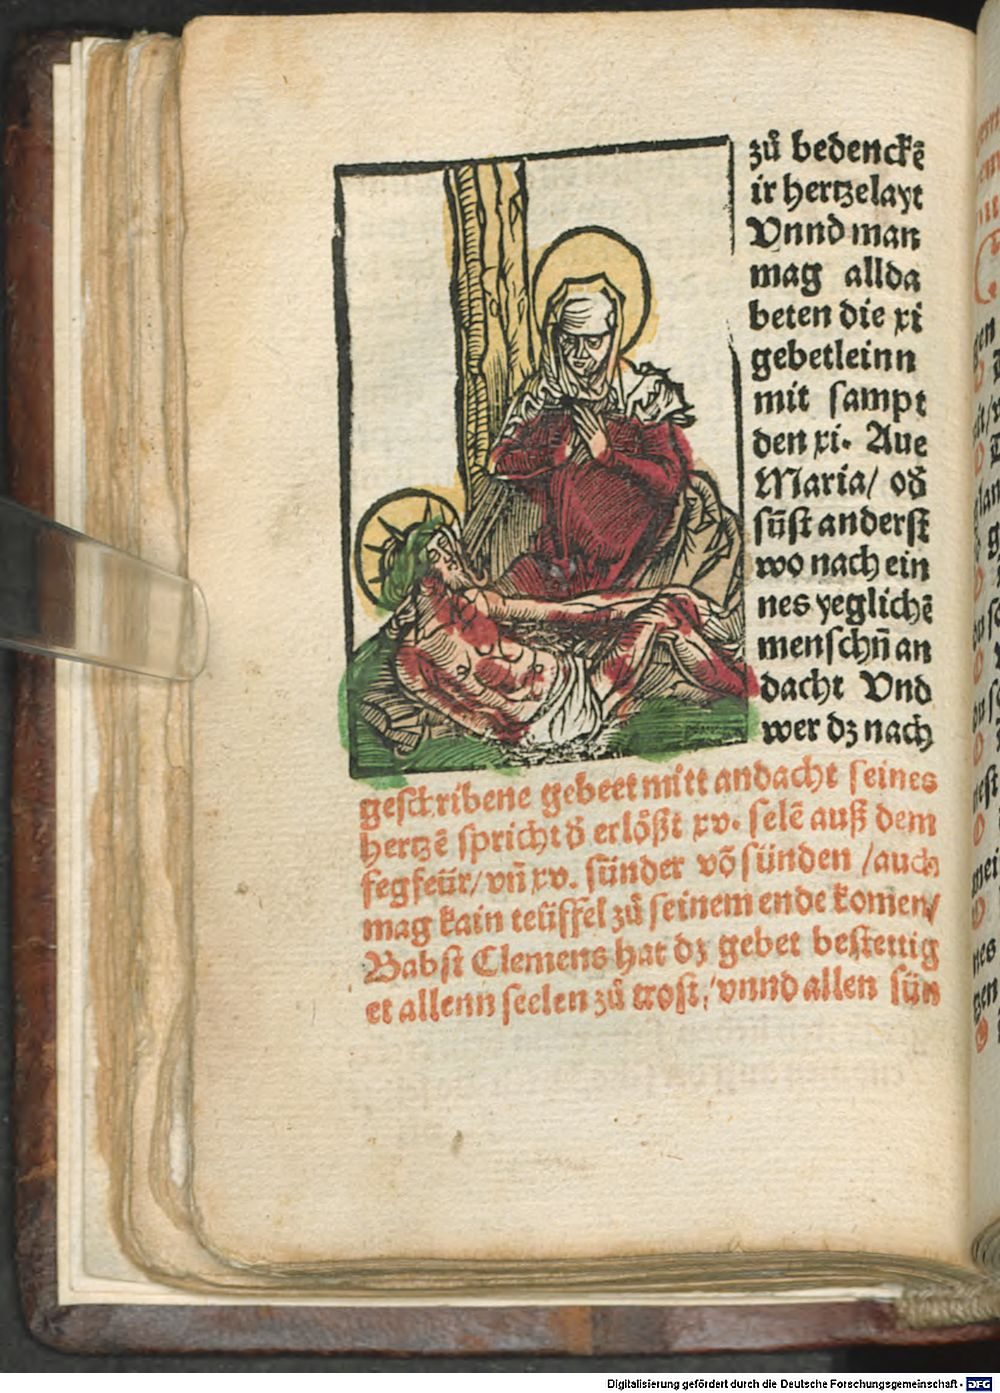 zů bedenckē
ir hertzelayt
Vnnd man
mag allda
beten die xi
gebetleinn
mit sampt
den xi. Aue
Maria/ od̄
sūst anderst
wo nach ein
nes yeglichē
menschn̄ an
dacht Vnd
wer dz nach
geschribene gebeet mitt andacht seines
hertzē spricht d̄ erlößt xv. selē auß dem
fegfeür/ vn̄ xv. sünder vō sünden /auch
mag kain teüffel zů seinem ende komen/
Babst Clemens hat dz gebet bestettig
et allenn seelen zů trost/ vnnd allen sün
Digitalisierung gefördert durch die Deutsche Forschungsgemeinschaft - DFG